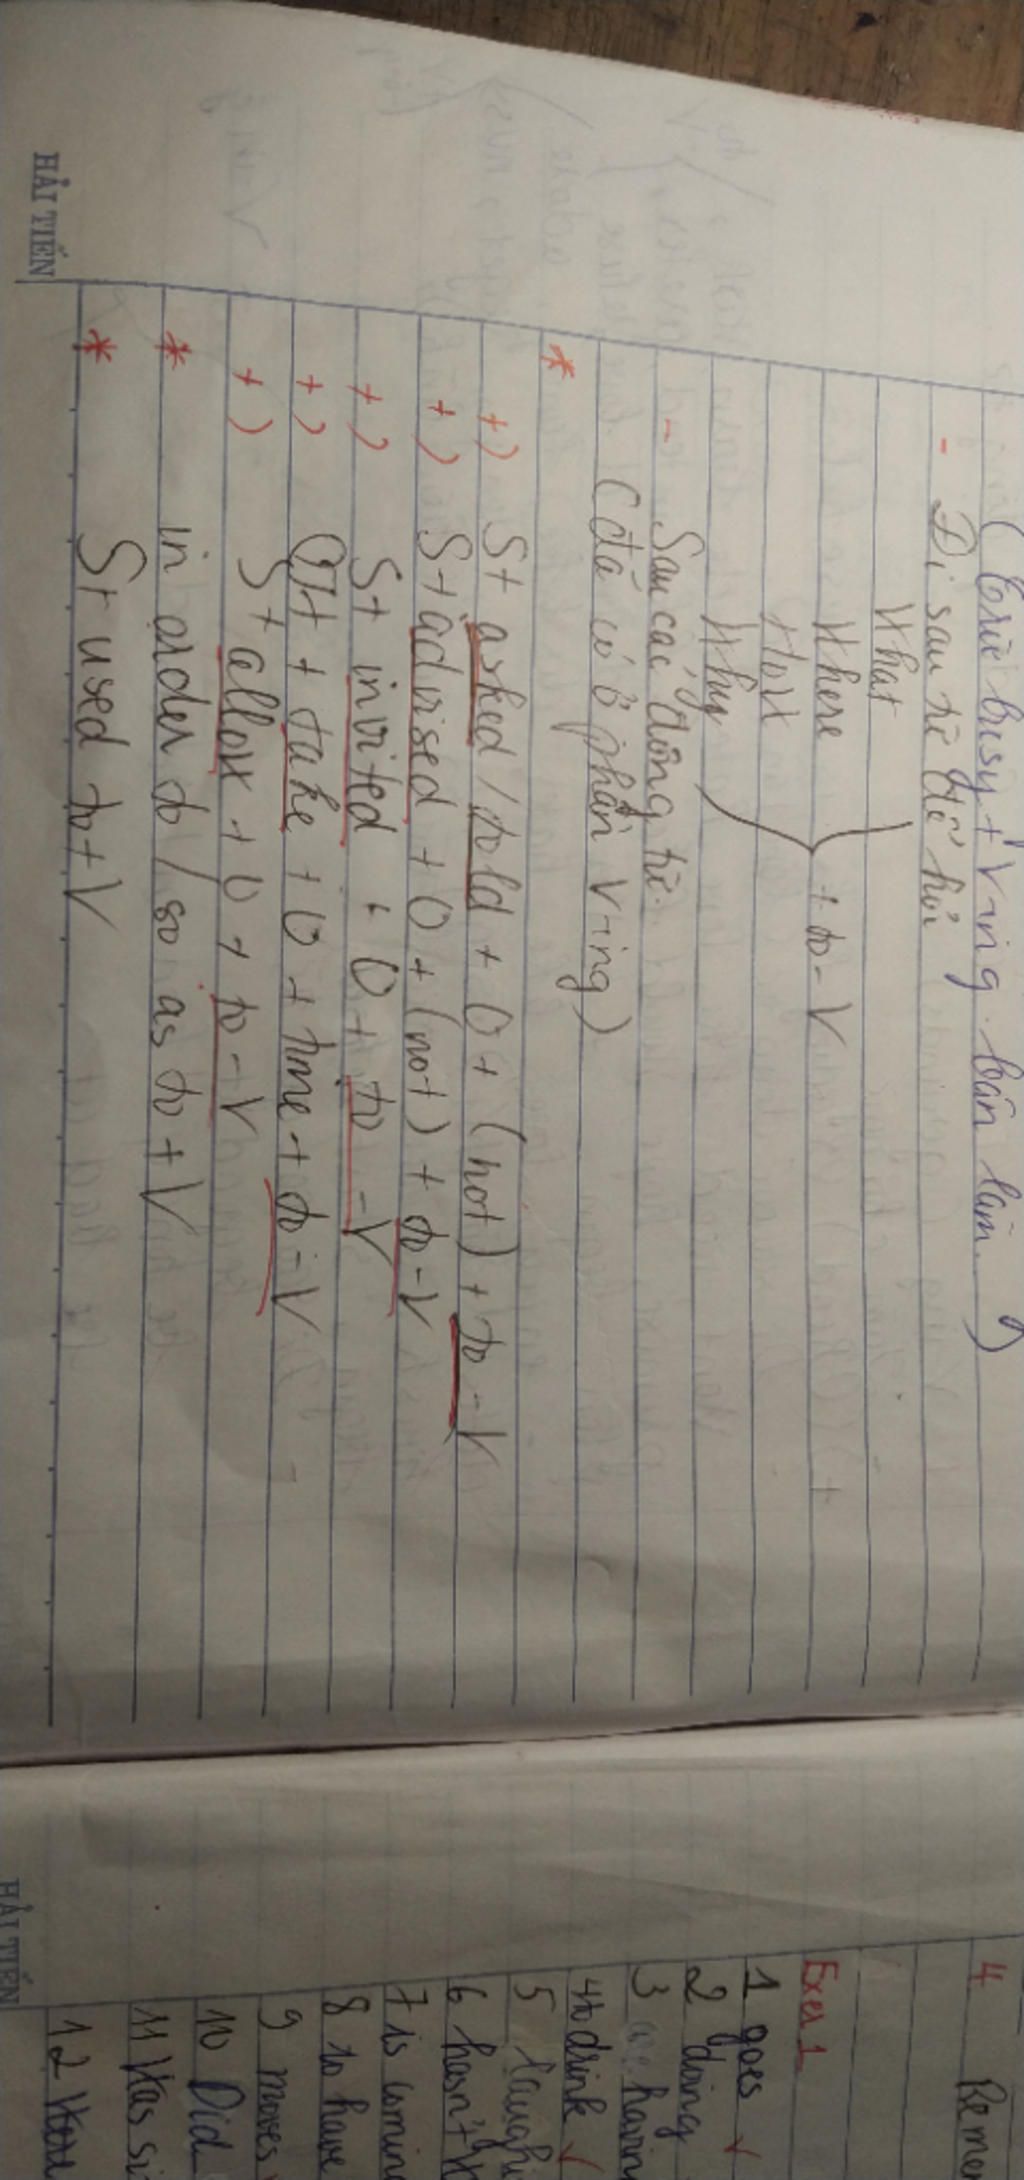 (trừ busy + Ving bận làm)
- Đi sau từ để hỏi
What
Where
How
Why
+ to - V
- Sau các động từ.
(đã có ở phần V-ing)
*
+) S+ asked / told + O + (not) + to - V
+) S+ advised + O + (not) + to - V
+) S+ invited + O + to - V
+) + take + O + time + to - V
+) S+ allow + O + to - V
* in order to / so as to + V
* S+ used to + V
HẢI TIẾN
4 Reme
Exer 1
1 goes
2 doing
3 are havin
4 to drink
5 laughi
6 hasn't
7 is coming
8 to have
9 moves
10 Did
11 Was si
12 Were
HẢI TIẾN